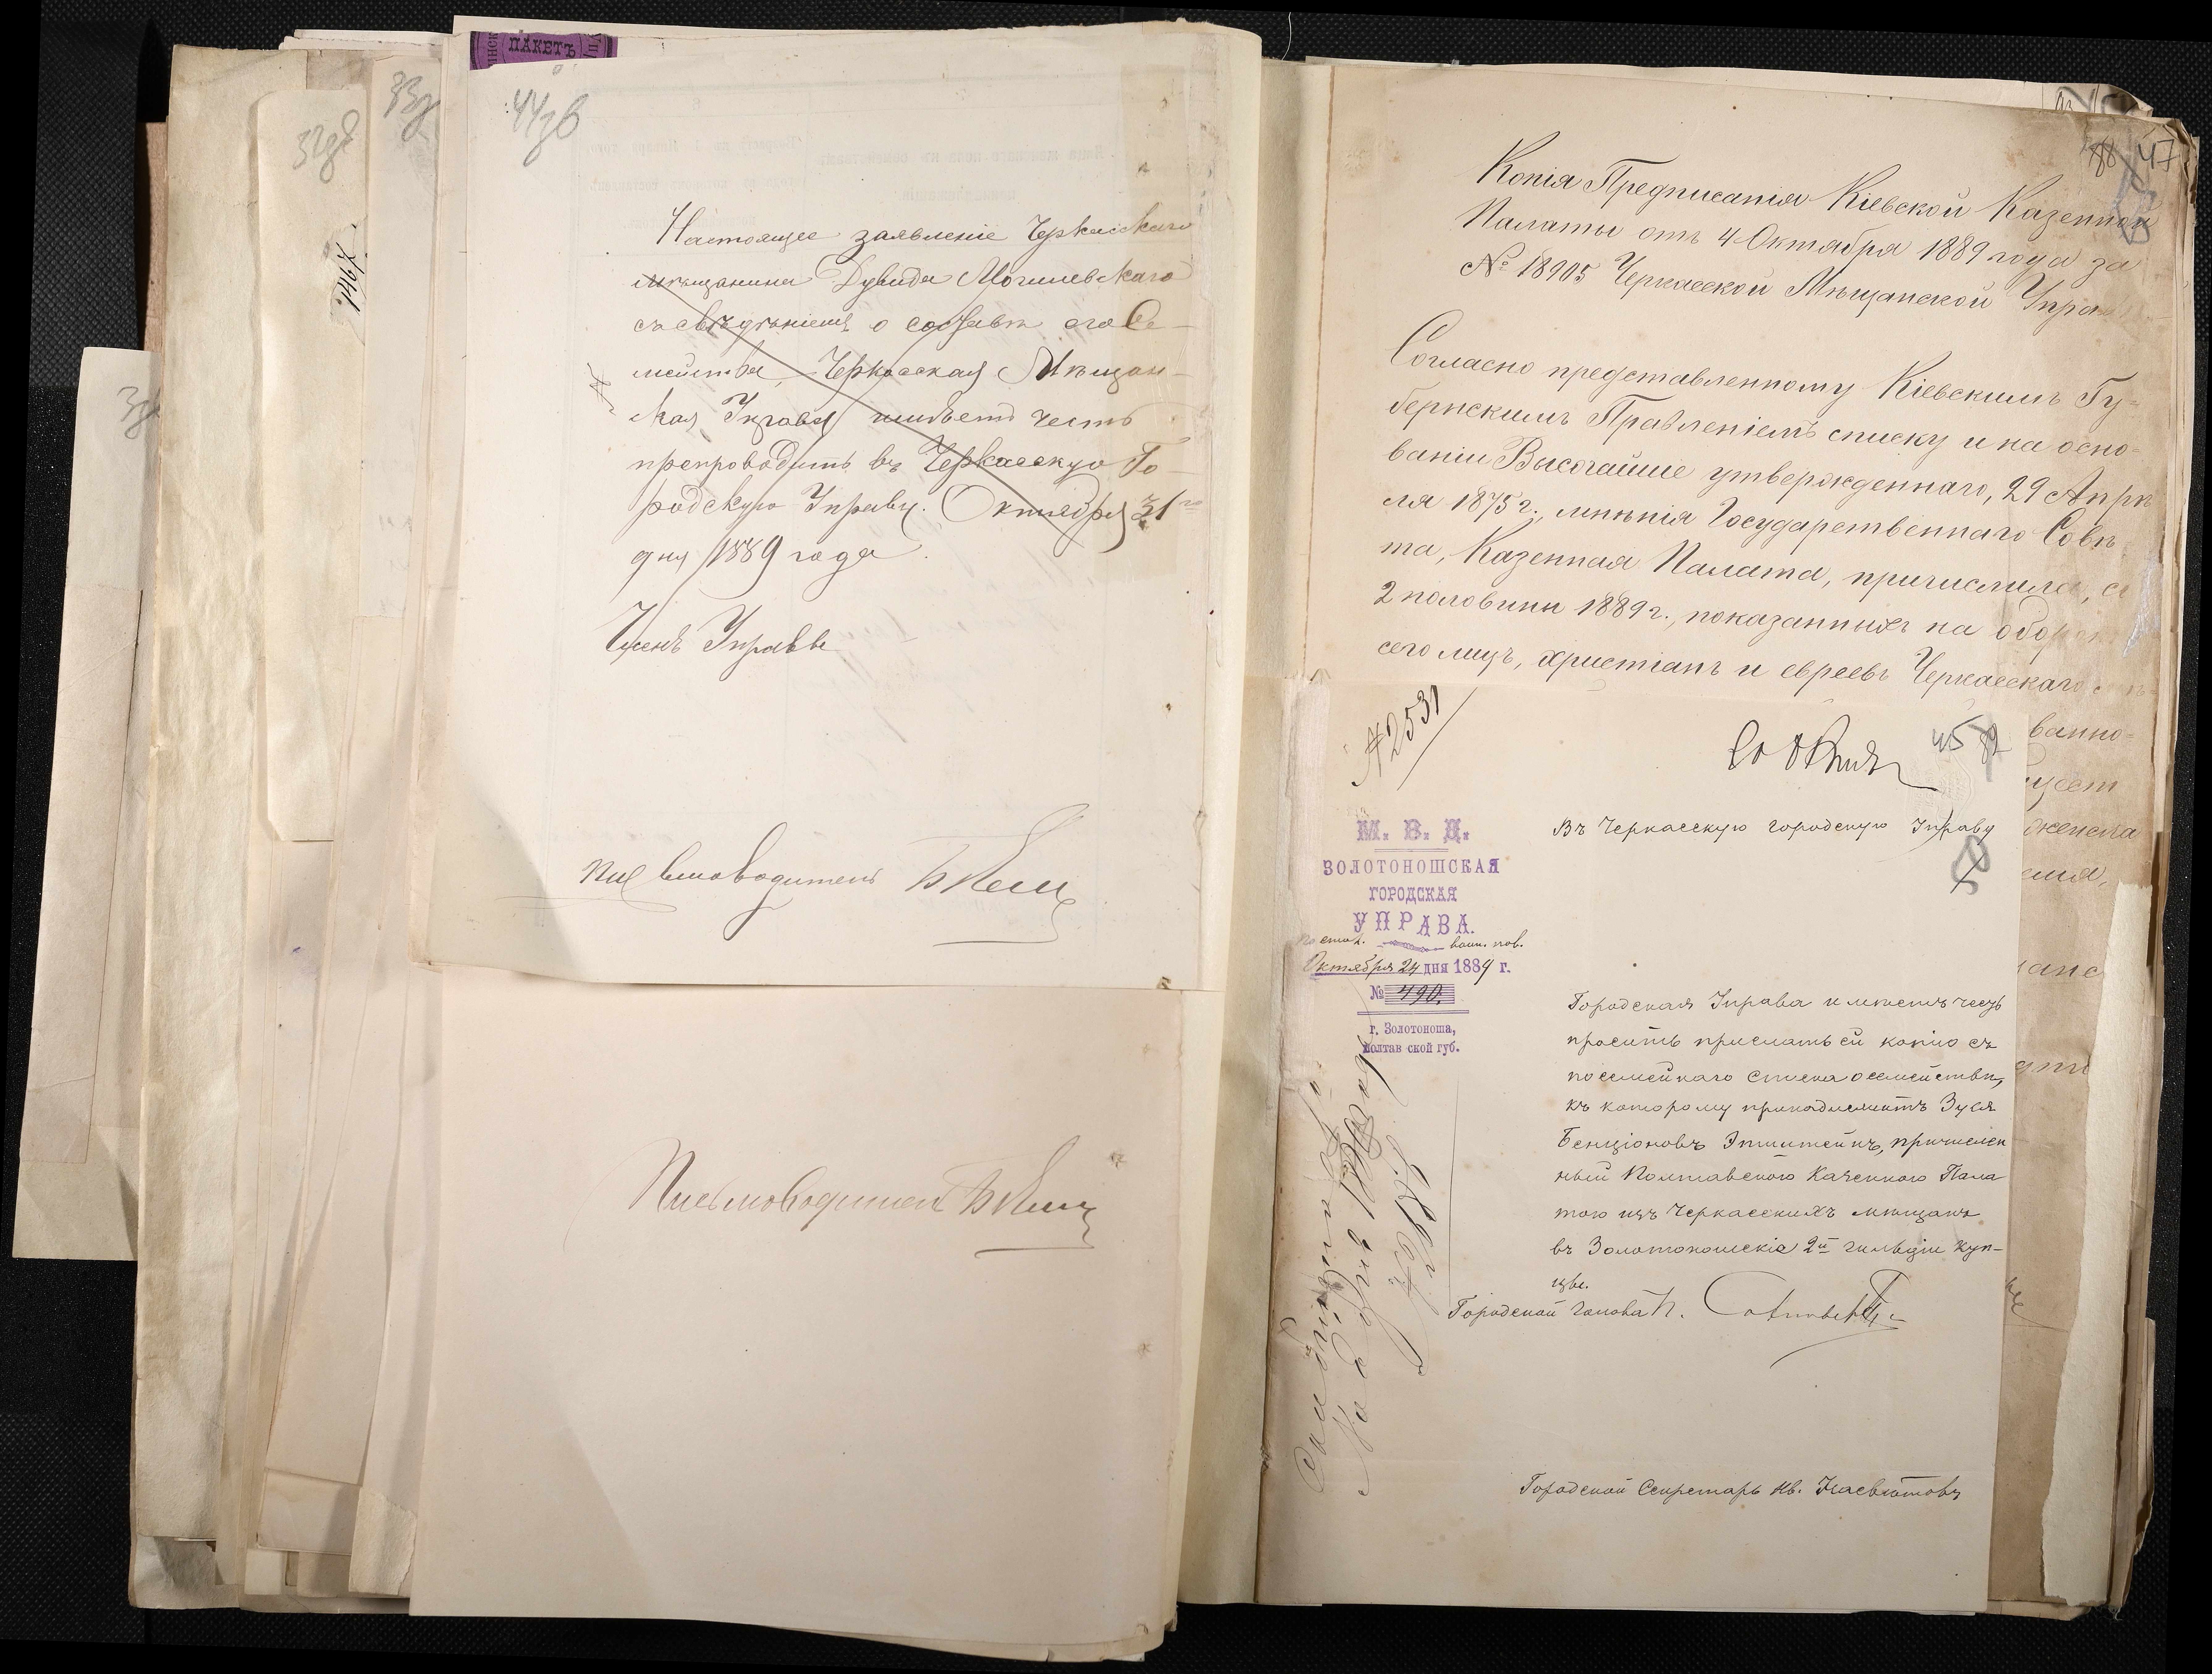 ПАКЕТЪ
32зв
33з
1467.
44зв
Настоящее заявленіе Черкасскаго
мѣщанина Дувида Могилевскаго
съ свѣдѣніемъ о составѣ его Се-
мейства, Черкасская Мѣщан-
ская Управа имѣетъ честь
препроводить въ Черкасскую Го-
родскую Управу. Октября 31го
дня 1889 года.
Членъ Управы
Письмоводитель
Письмоводитель
88 47
Копія Предписанія Кіевской Казенной
Палаты отъ 4 Октября 1889 года за
№ 18905 Черкасской Мѣщанской Управ
Согласно представленному Кіевскимъ Гу-
бернскимъ Правленіемъ списку и на осно-
ваніи Высочайше утвержденнаго, 29 Апрѣ
ля 1875 г., мнѣнія Государственнаго Совѣ
та, Казенная Палата, причислила, съ
2 половины 1889 г., показанныхъ на оборотѣ
сего лицъ, христіанъ и евреевъ Черкасскаго
ванно-
№ 2531
45
М. В. Д.
ЗОЛОТОНОШСКАЯ
ГОРОДСКАЯ
УПРАВА.
По стол. воин. пов.
Октября 24 дня 1889 г.
№ 490.
г. Золотоноша,
Полтавской губ.
Въ Черкасскую городскую Управу
Городская Управа имѣетъ честь
просить прислать ей копію съ
посемейнаго списка о семействѣ,
къ которому принадлежитъ Зуся
Бенціоновъ Эпштейнъ, причислен
ный Полтавскою Казенною Пала
тою изъ Черкасскихъ мѣщанъ
въ Золотоношскіе 2й гильдіи куп-
цы.
Городской голова П.
Городской Секретарь Ив.